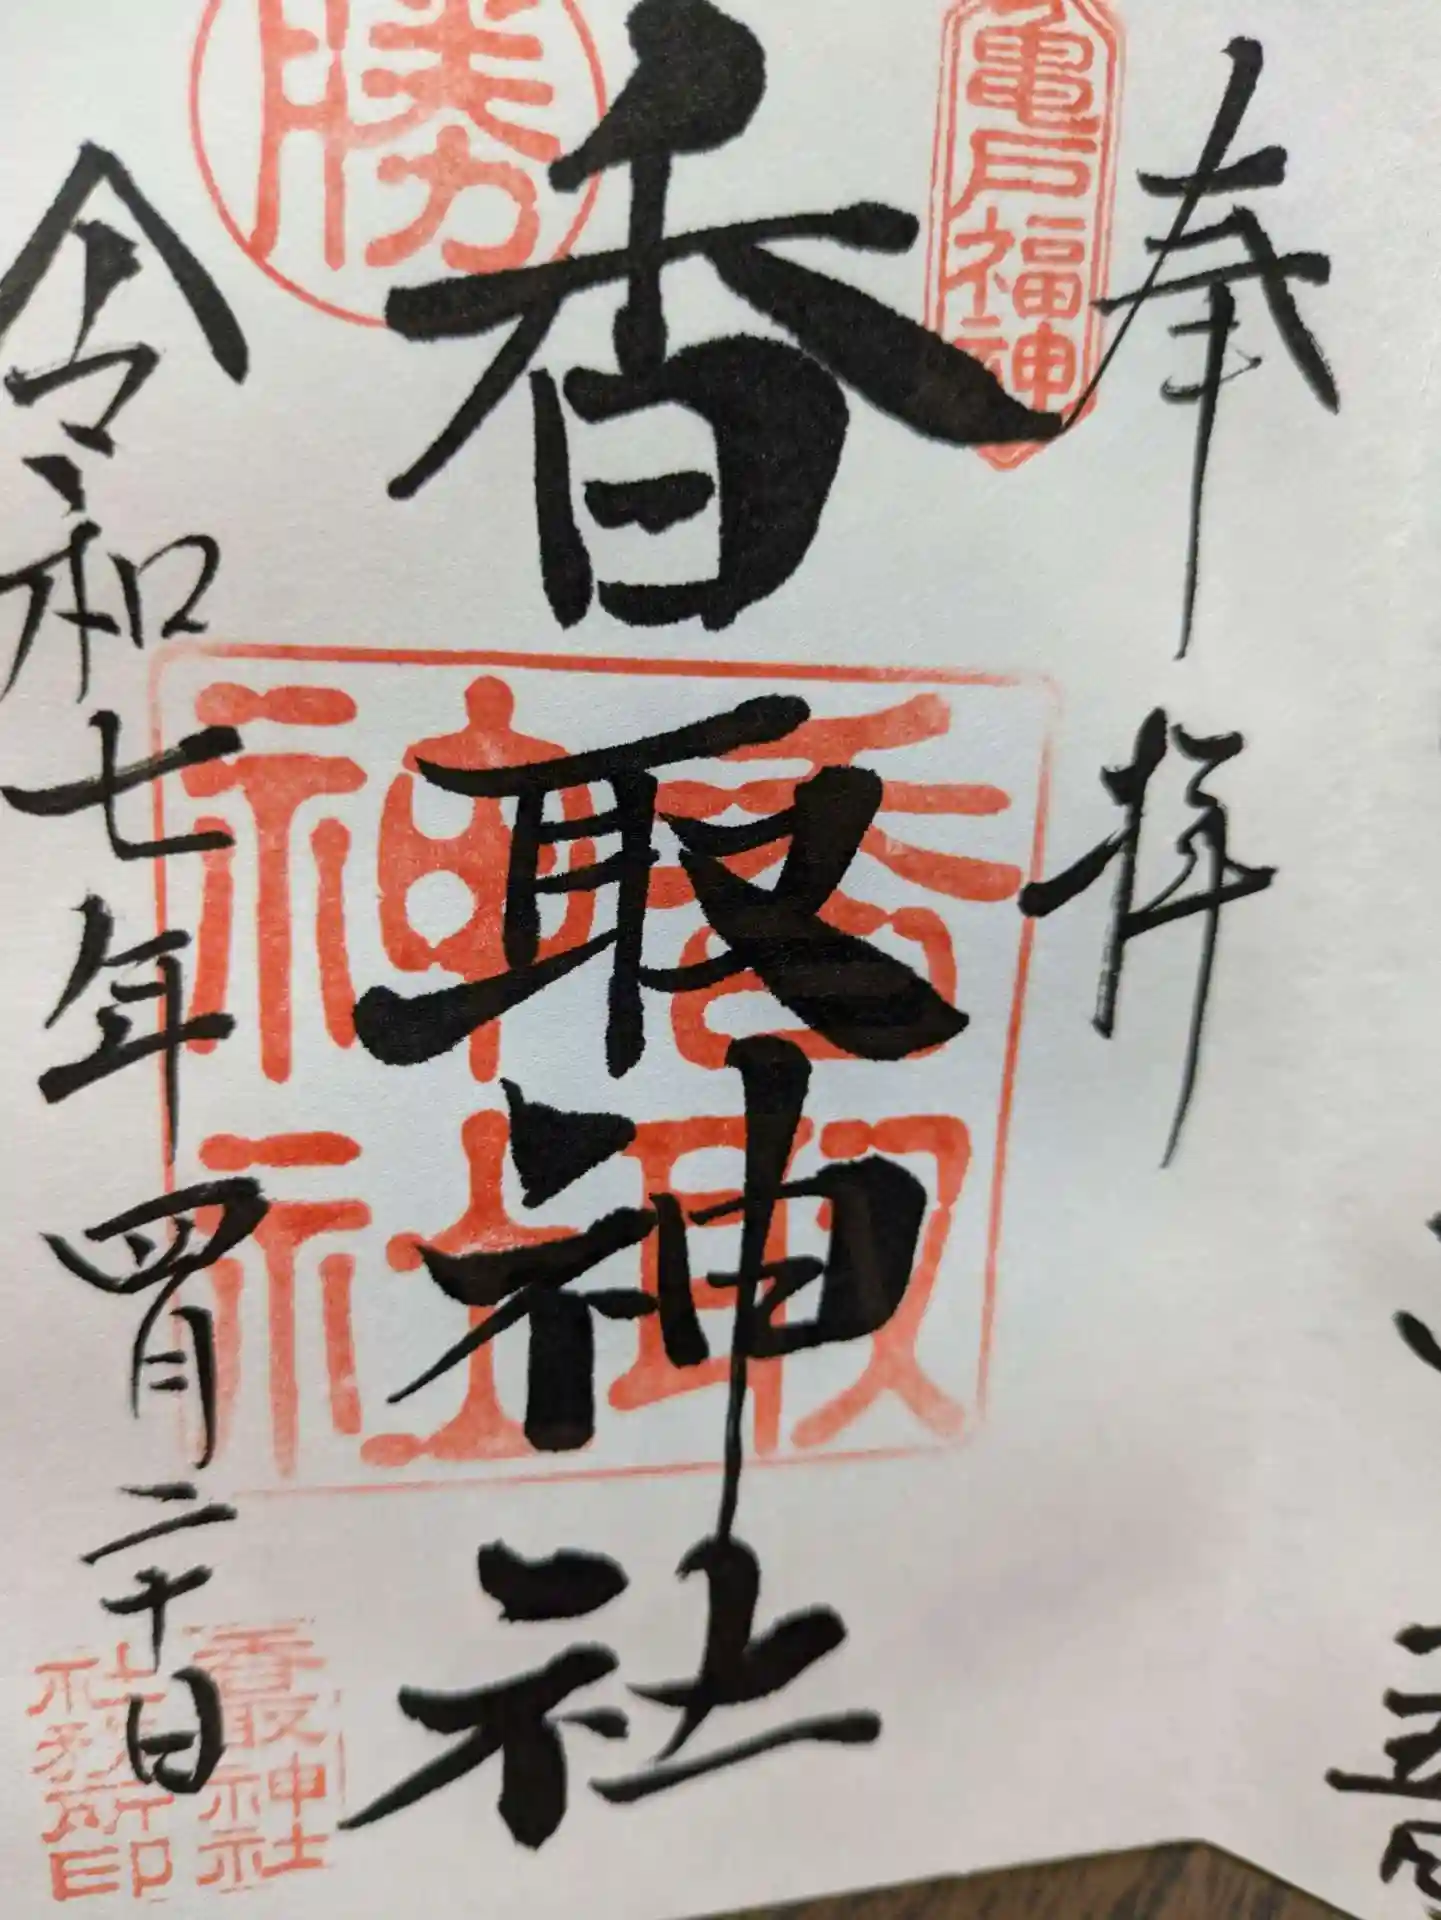 奉拝
亀戸福神
社
勝
香取神社
香取
神社
令和七年四月二十日
香取神社
社務所印